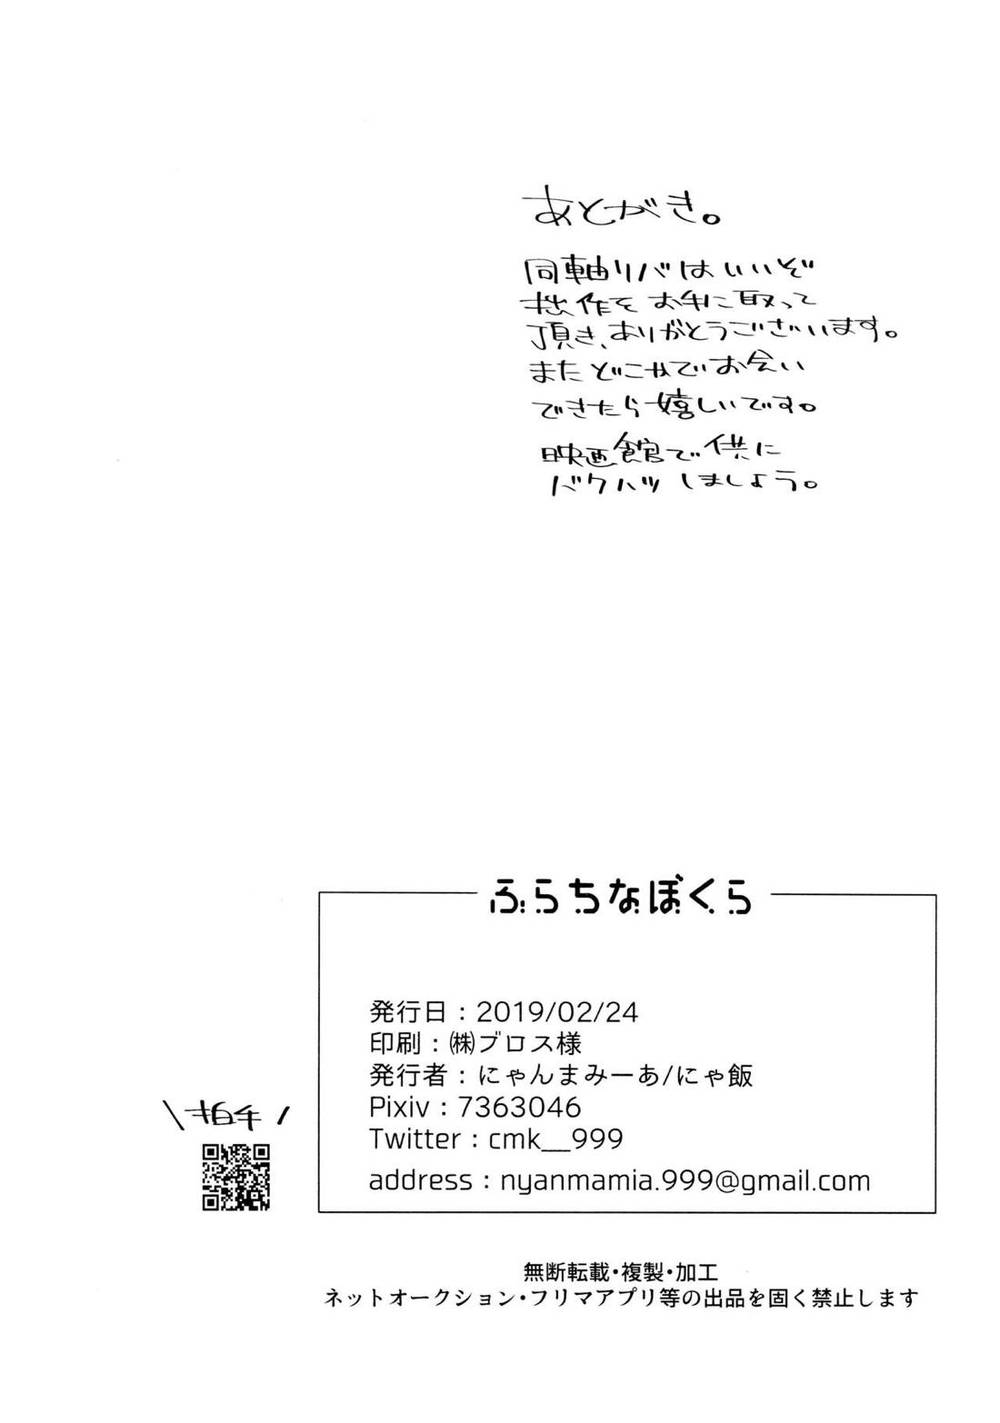 あとがき。
同軸リバはいいぞ
拙作をお手に取って
頂き、ありがとうございます。
またどこかでお会い
できたら嬉しいです。
映画館で供に
バクハツしましょう。
ふらちなぼくら
発行日：2019/02/24
印刷：㈱ブロス様
発行者：にゃんまみーあ/にゃ飯
Pixiv：7363046
Twitter：cmk__999
address：nyanmamia.999@gmail.com
\拍手/
無断転載・複製・加工
ネットオークション・フリマアプリ等の出品を固く禁止します